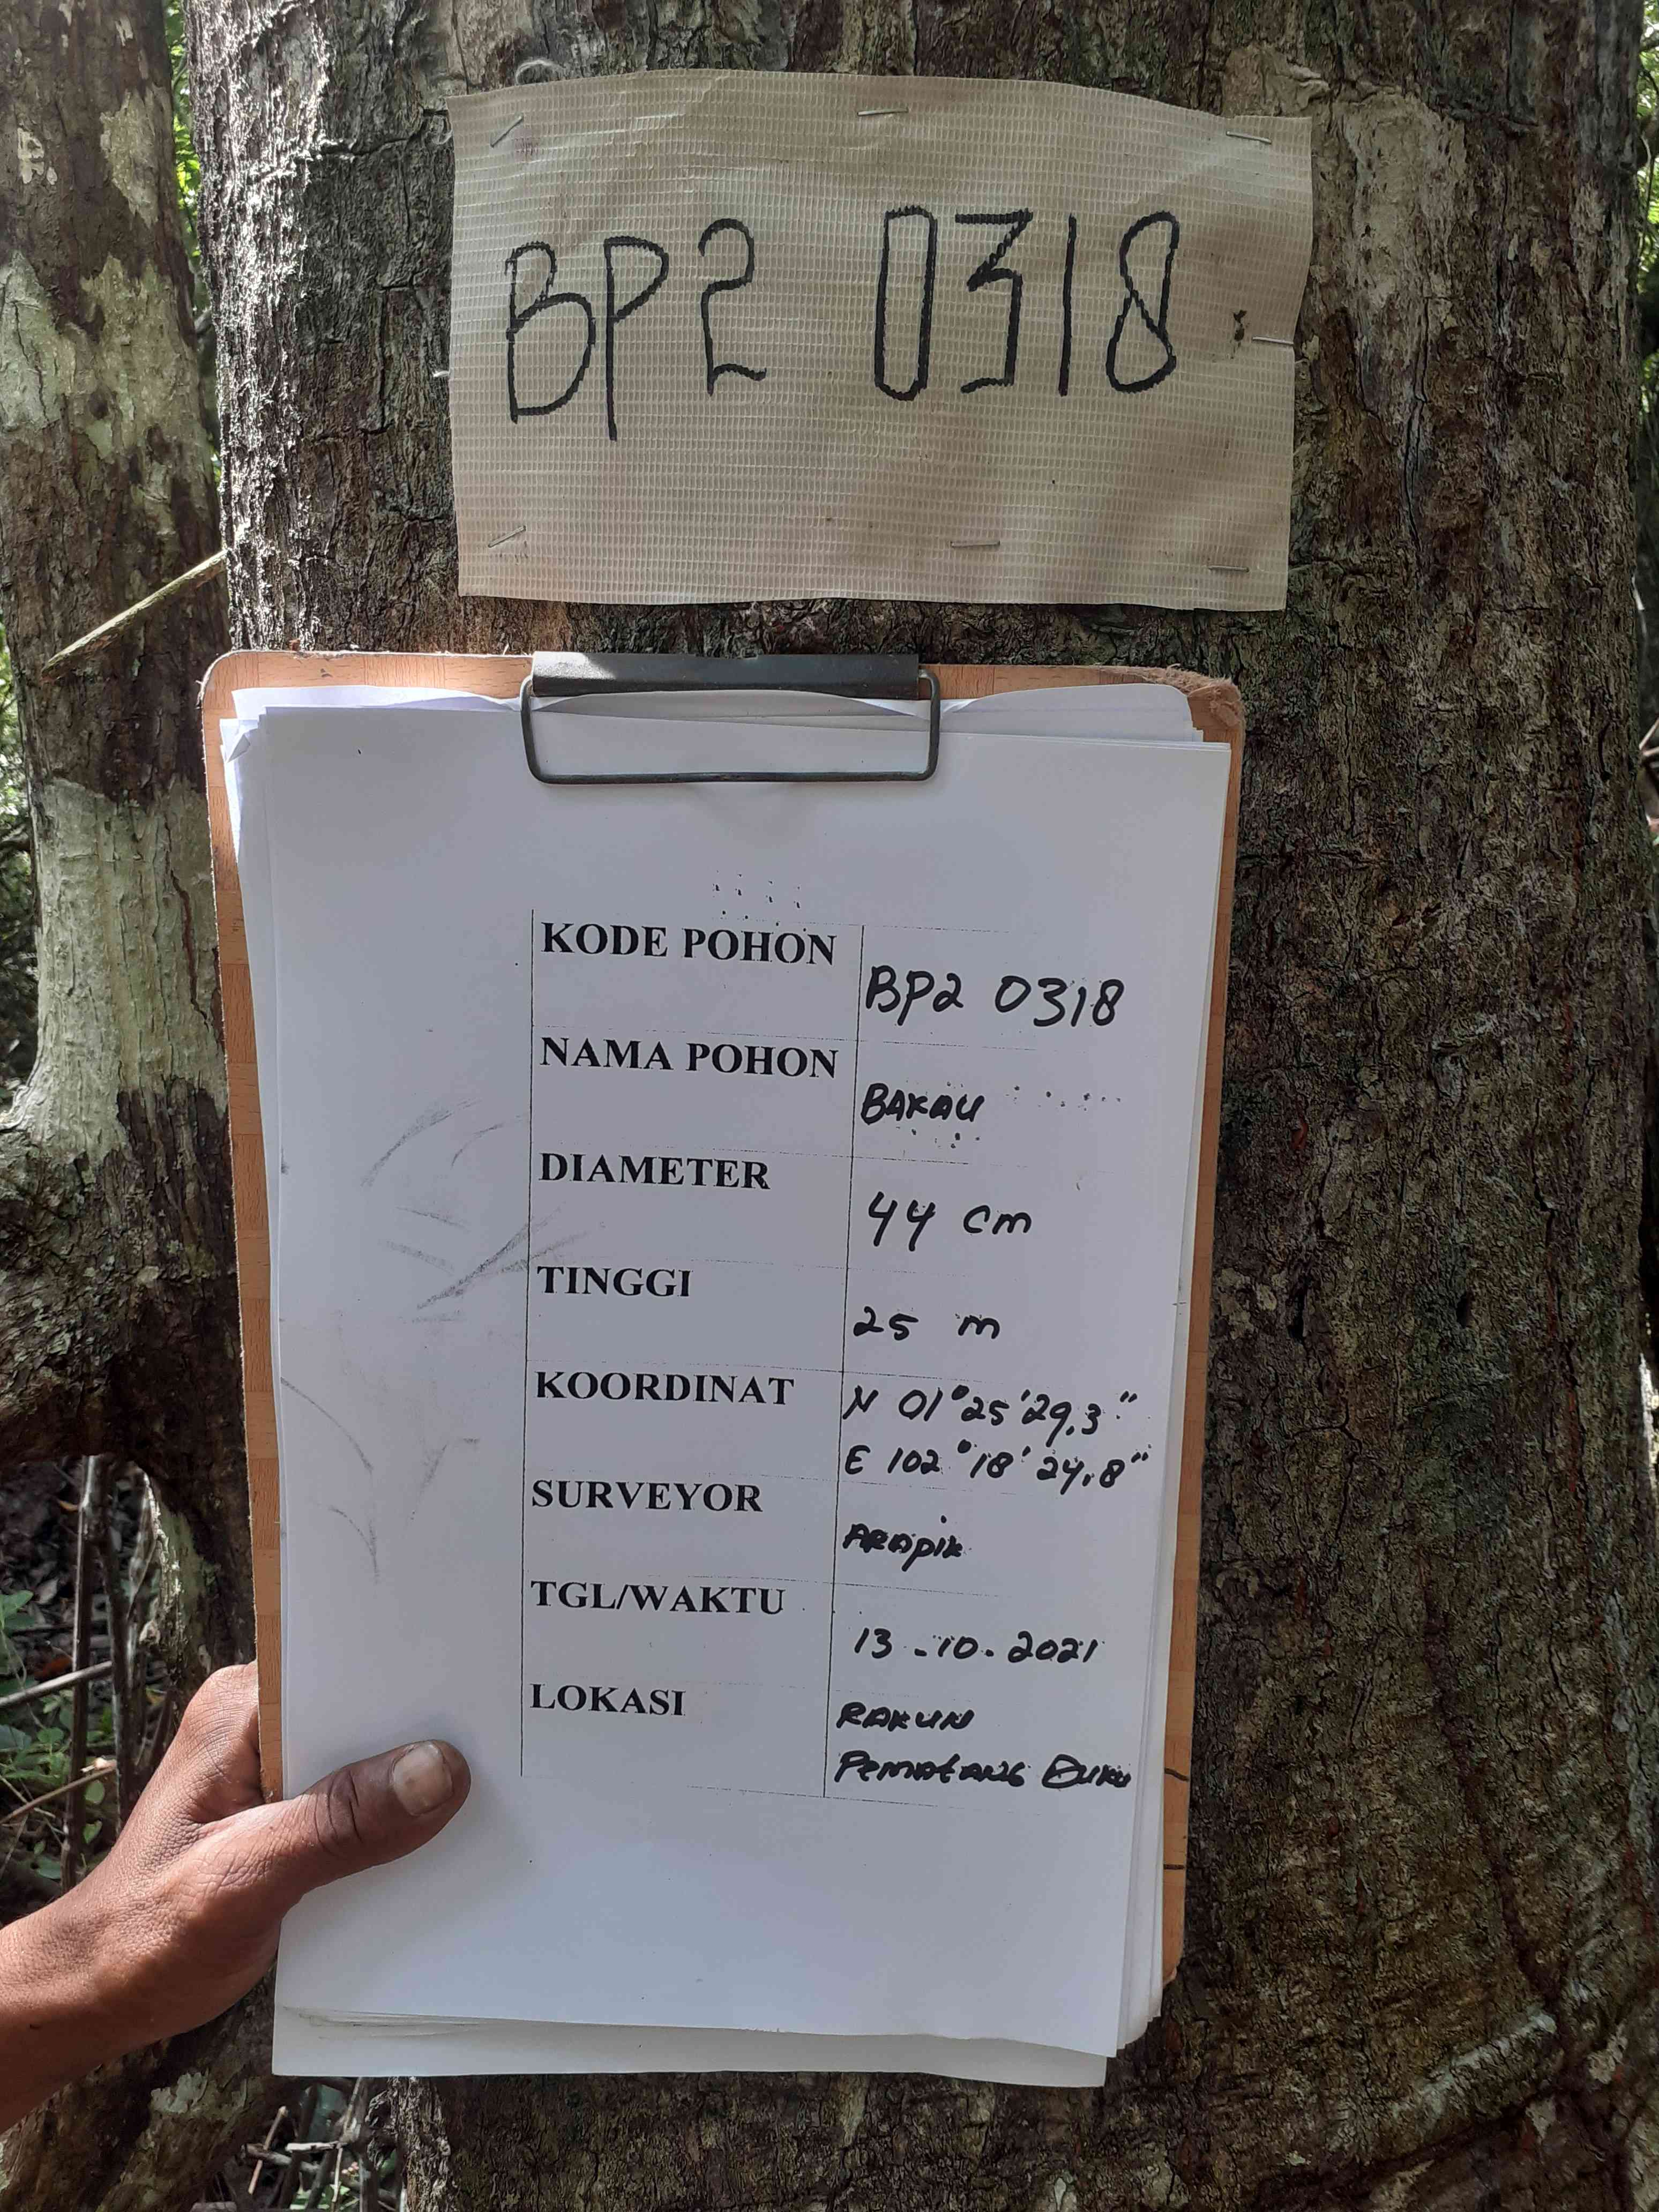 BP2 0318
KODE POHON BP2 0318
NAMA POHON BAKAU
DIAMETER 44 cm
TINGGI 25 m
KOORDINAT N 01°25'29,3"
E 102°18'24,8"
SURVEYOR ARApik
TGL/WAKTU 13-10-2021
LOKASI RAKUN
PemAtANG Duku